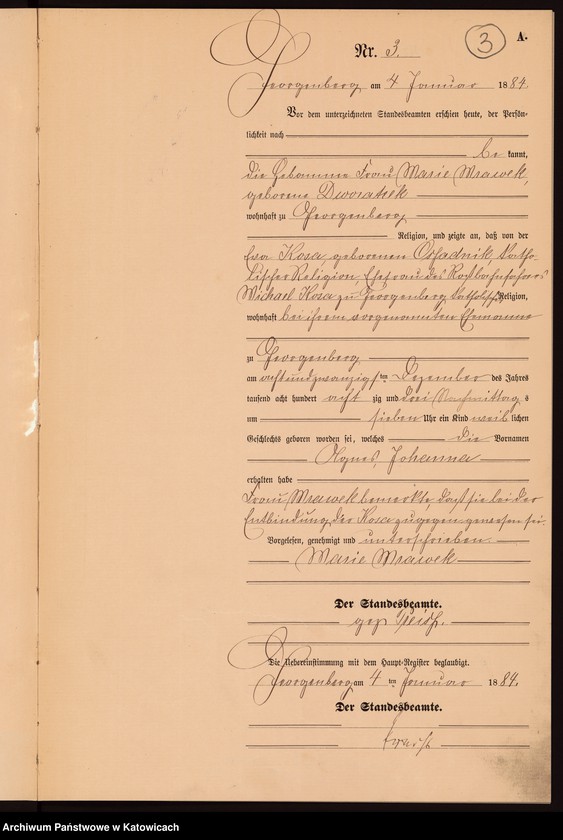 A.
3
Nr. 3.
Georgenberg am 4 Januar 1884.
Vor dem unterzeichneten Standesbeamten erschien heute, der Persön-
lichkeit nach
be kannt,
die Hebamme Frau Marie Mrawek,
geborene Dworatzek
wohnhaft zu Georgenberg
Religion, und zeigte an, daß von der
Eva Kosa, geborenen Ossadnik, katho-
lischer Religion, Ehefrau des
Michael Kosa zu Georgenberg katholischer Religion,
wohnhaft bei ihrem vorgenannten Ehemanne
zu Georgenberg
am achtundzwanzig ten Dezember des Jahres
tausend acht hundert acht zig und drei Nachmittag s
um sieben Uhr ein Kind weib lichen
Geschlechts geboren worden sei, welches die Vornamen
Agnes, Johanna
erhalten habe
Frau Mrawek bemerkte, daß sie bei der
Entbindung der Kosa zugegen gewesen sei.
Vorgelesen, genehmigt und unterschrieben
Marie Mrawek
Der Standesbeamte.
gez.
Die Uebereinstimmung mit dem Haupt-Register beglaubigt.
Georgenberg am 4 ten Januar 1884.
Der Standesbeamte.
Archiwum Państwowe w Katowicach